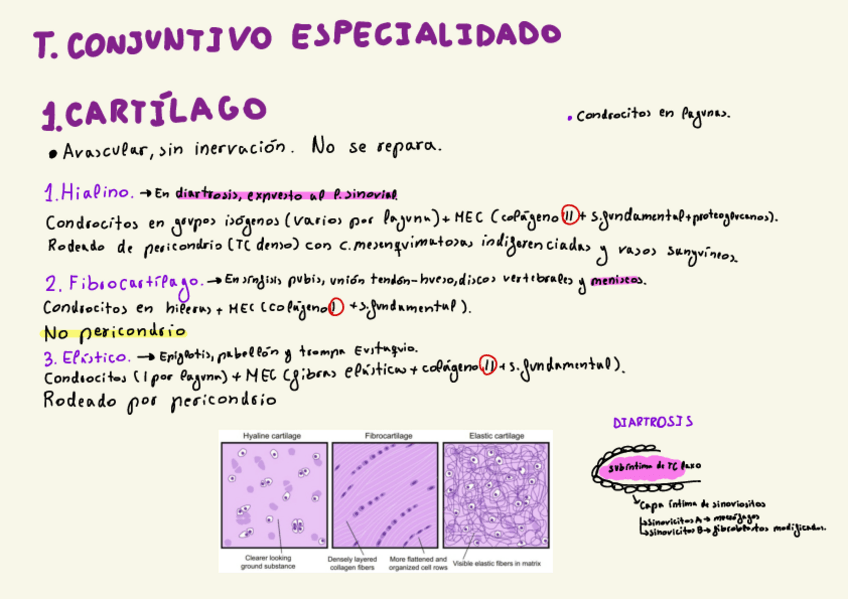 T. CONJUNTIVO ESPECIALIDADO
1. CARTÍLAGO
• Condrocitos en lagunas.
• Avascular, sin inervación. No se repara.
1. Hialino. → En diartrosis, expuesto al l. sinovial.
Condrocitos en grupos isógenos (varios por laguna) + MEC (colágeno II + s. fundamental + proteoglucanos).
Rodeado de pericondrio (TC denso) con c. mesenquimatosas indiferenciadas y vasos sanguíneos.
2. Fibrocartílago. → En sínfisis pubis, unión tendón-hueso, discos vertebrales y meniscos.
Condrocitos en hileras + MEC (colágeno I + s. fundamental).
No pericondrio
3. Elástico. → Epiglotis, pabellón y trompa Eustaquio.
Condrocitos (1 por laguna) + MEC (fibras elásticas + colágeno II + s. fundamental).
Rodeado por pericondrio
Hyaline cartilage
Fibrocartilage
Elastic cartilage
Clearer looking
ground substance
Densely layered
collagen fibers
More flattened and
organized cell rows
Visible elastic fibers in matrix
DIARTROSIS
subíntima de TC laxo
Capa íntima de sinoviocitos
sinoviocitos A → macrófagos
sinoviocitos B → fibroblastos modificados.